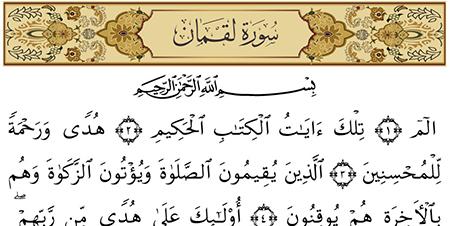 سُورَةُ لُقْمَانَ
بِسْمِ ٱللَّهِ ٱلرَّحْمَٰنِ ٱلرَّحِيمِ
الٓمٓ ﴿١﴾ تِلْكَ ءَايَاتُ ٱلْكِتَابِ ٱلْحَكِيمِ ﴿٢﴾ هُدًى وَرَحْمَةً
لِّلْمُحْسِنِينَ ﴿٣﴾ ٱلَّذِينَ يُقِيمُونَ ٱلصَّلَوٰةَ وَيُؤْتُونَ ٱلزَّكَوٰةَ وَهُم
بِٱلْأَخِرَةِ هُمْ يُوقِنُونَ ﴿٤﴾ أُوْلَٰٓئِكَ عَلَىٰ هُدًى مِّن رَّبِّهِمْ ۖ